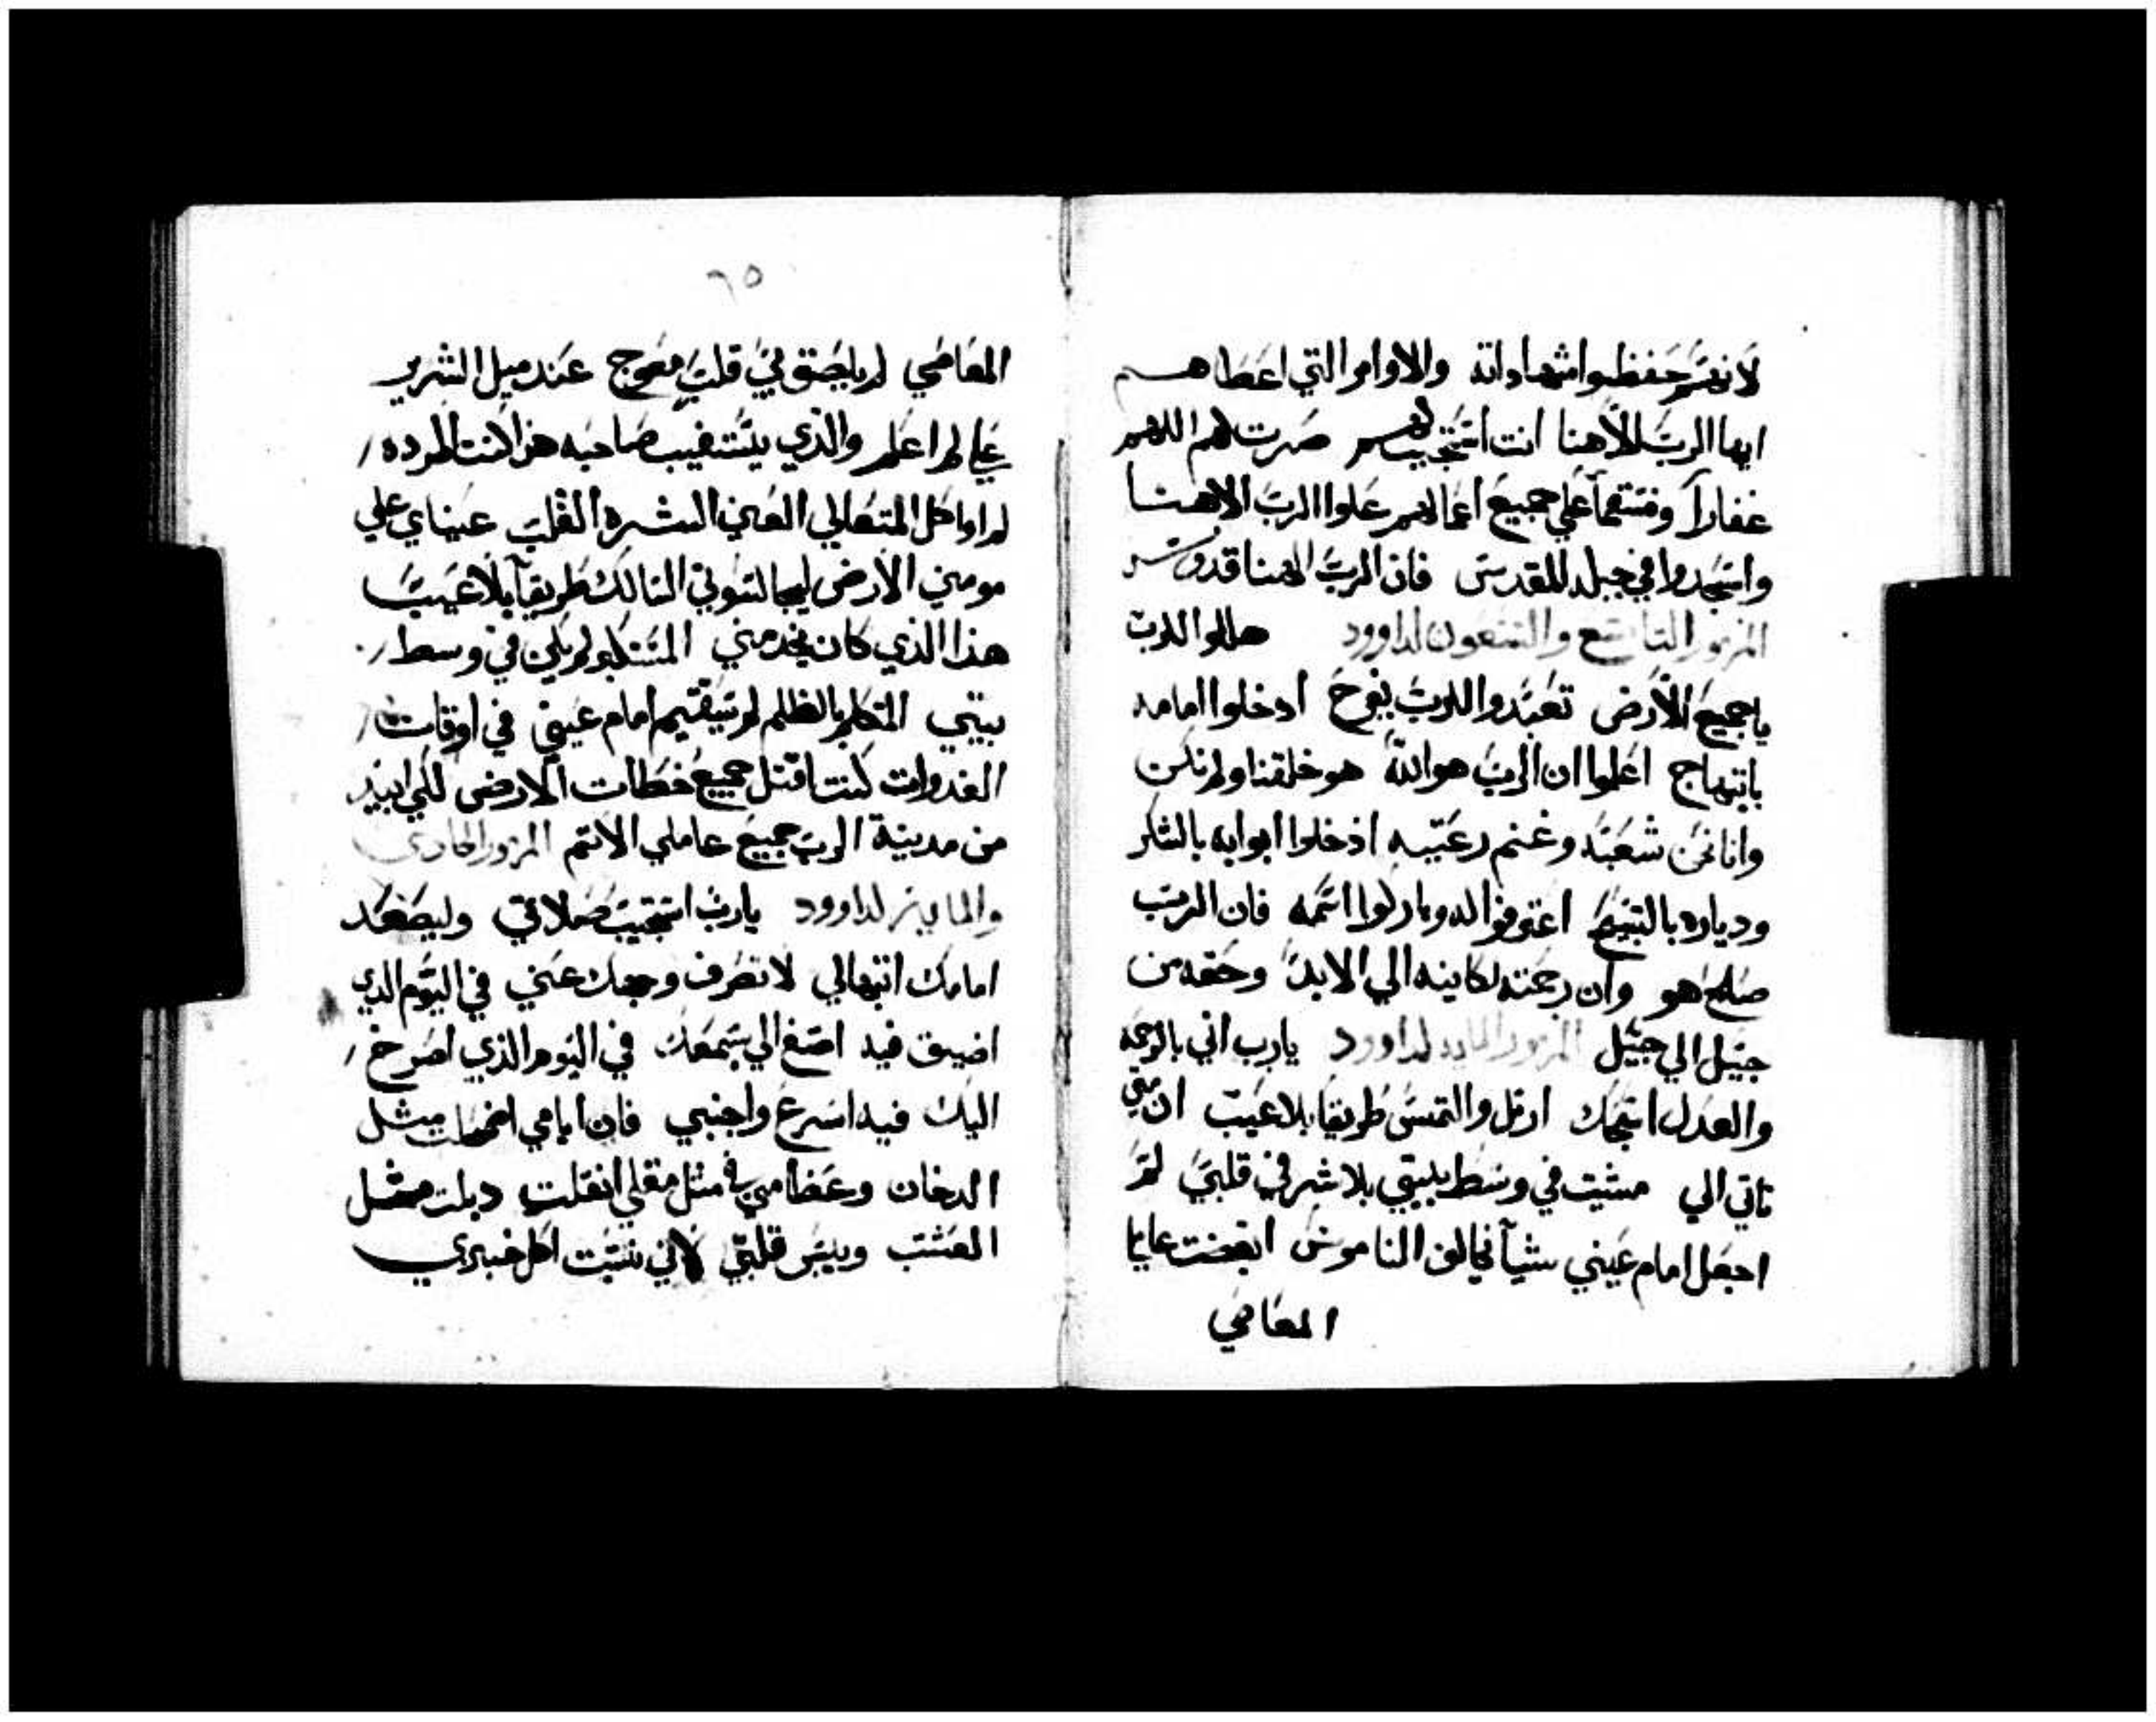 لانهم حفظوا شهاداته والاوامر التي اعطاهم
ايها الرب الاهنا انت استجيب لهم صرت لهم اللهم
غفارا ومنتقما علي جميع اعمالهم علوا الرب الاهنا
واسجدوا في جبله المقدس فان الرب الهنا قدوس
المزمور التاسع والتسعون لداوود هللوا للرب
يا جميع الارض تعبدوا للرب بفرح ادخلوا امامه
بابتهاج اعلموا ان الرب هو الله هو خلقنا ولم نكن
وانا نحن شعبه وغنم رعيته ادخلوا ابوابه بالشكر
ودياره بالتسبيح اعترفوا له وباركوا اسمه فان الرب
صالح هو وان رحمته لكاينه الي الابد وحقه من
جيل الي جيل المزمور المايه لداوود يارب اني بالرحمه
والعدل اسبحك ارتل والتمس طريقا بلا عيب ان متي
تاتي الي مشيت في وسط بيتي بلا شر في قلبي لم
اجعل امام عيني شيآ يخالف الناموس ابغضت عاملي
المعاصي
٦٥
المعاصي لم يلصق بي قلب معوج عند ميل الشرير
عني لم اعلم والذي يستغيب صاحبه هذا كنت اطرده
لم اواكل المتعالي العين الشره القلب عيناي علي
مومني الارض ليجالسوني السالك طريقآ بلا عيب
هذا الذي كان يخدمني المستكبر لم يكن في وسط
بيتي المتكلم بالظلم لم يستقيم امام عيني في اوقات
الغدوات كنت اقتل جميع خطات الارض لكي ابيد
من مدينة الرب جميع عاملي الاثم المزمور الحادي
والمايه لداوود يارب استجيب صلاتي وليصعد
امامك ابتهالي لا تصرف وجهك عني في اليوم الذي
اضيق فيه اصغ الي بسمعك في اليوم الذي اصرخ
اليك فيه اسرع واجبني فان ايامي اضمحلت مثل
الدخان وعظامي مثل مقلي انقلت دبلت مثل
العشب ويبس قلبي لاني نسيت اكل خبزي